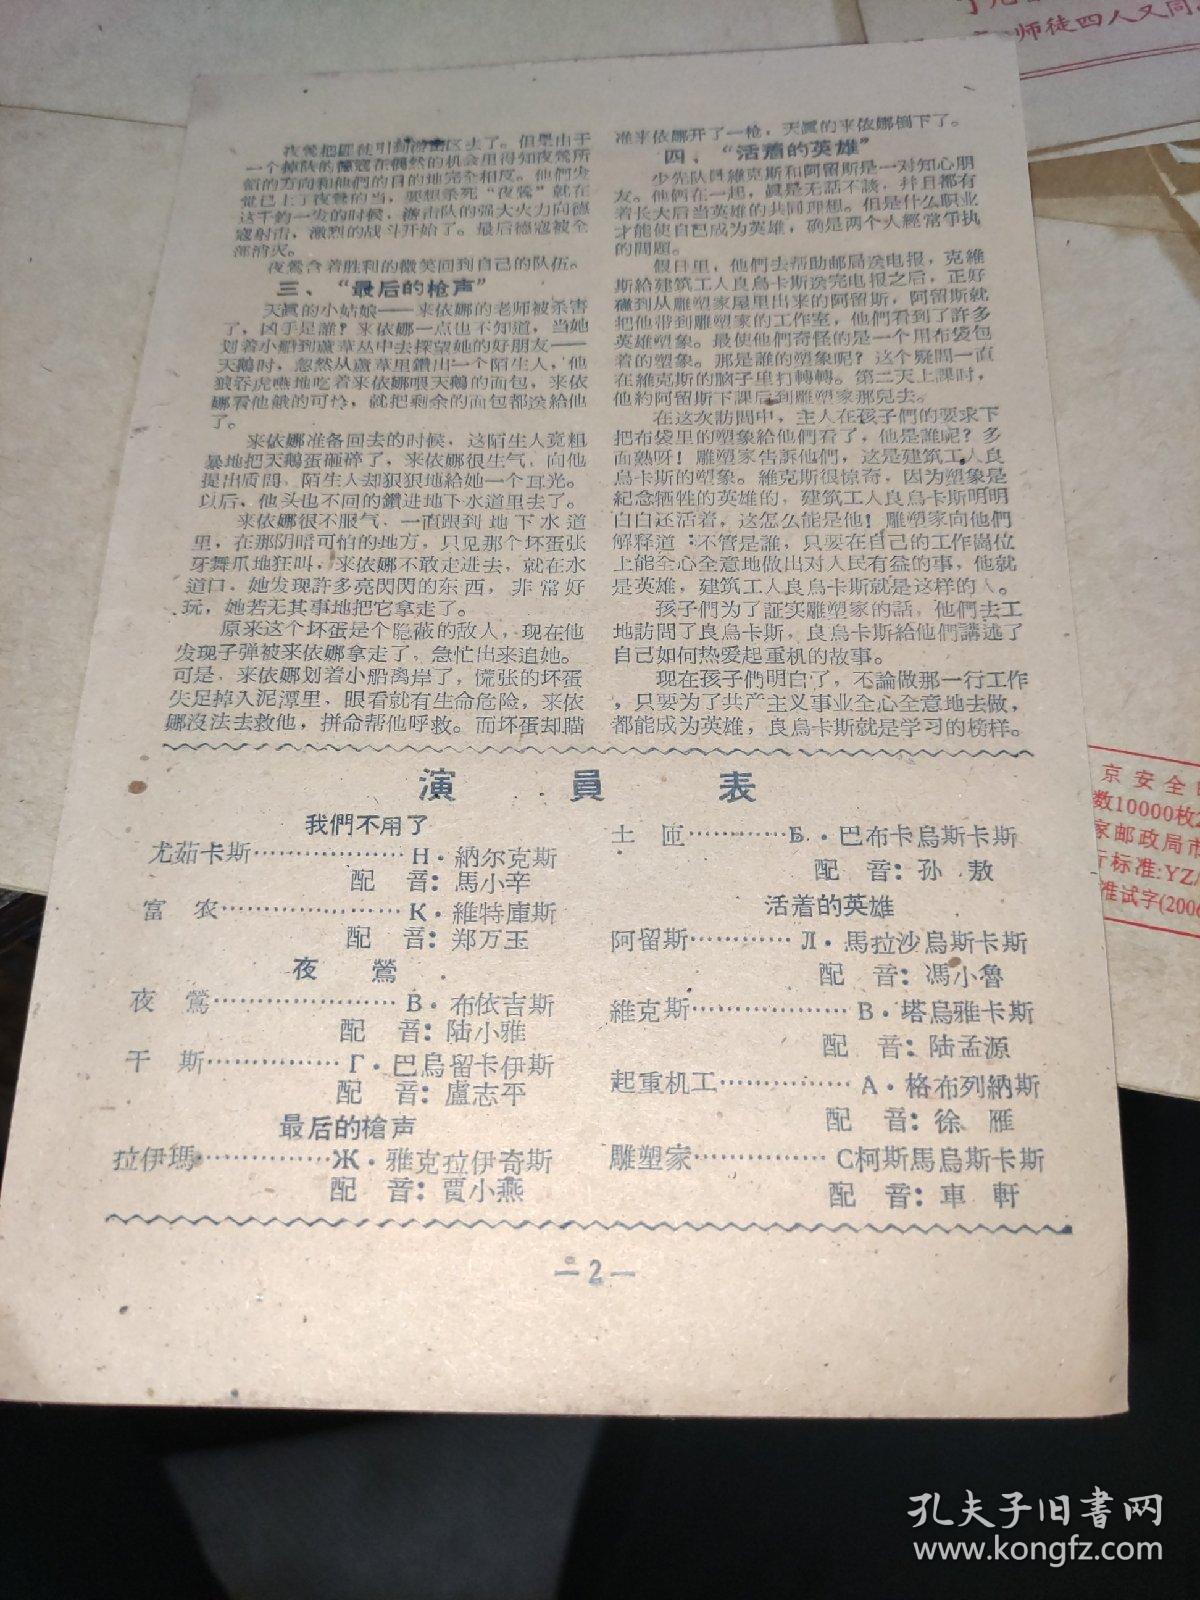 夜鶯把匪徒引到游击区去了。但是由于
一个掉队的德寇在偶然的机会里得知夜鶯所
領的方向和他們的目的地完全相反。他們发
覚已上了夜鶯的当，要想杀死“夜鶯”就在
这千鈞一发的时候，游击队的强大火力向德
寇射击，激烈的战斗开始了。最后德寇被全
部消灭。
夜鶯含着胜利的微笑回到自己的队伍。
三、“最后的槍声”
天眞的小姑娘——来依娜的老师被杀害
了，凶手是誰？来依娜一点也不知道，当她
划着小船到蘆葦丛中去探望她的好朋友——
天鵝时，忽然从蘆葦里鑽出一个陌生人，他
狼吞虎嚥地吃着来依娜喂天鵝的面包，来依
娜看他餓的可怜，就把剩余的面包都送給他
了。
来依娜准备回去的时候，这陌生人竟粗
暴地把天鵝蛋砸碎了，来依娜很生气，向他
提出质問，陌生人却狠狠地給她一个耳光。
以后、他头也不回的鑽进地下水道里去了。
来依娜很不服气，一直跟到地下水道
里，在那阴暗可怕的地方，只见那个坏蛋张
牙舞爪地狂叫，来依娜不敢走进去，就在水
道口，她发现許多亮閃閃的东西，非常好
玩，她若无其事地把它拿走了。
原来这个坏蛋是个隐蔽的敌人，现在他
发现子弹被来依娜拿走了，急忙出来追她。
可是，来依娜划着小船离岸了，慌张的坏蛋
失足掉入泥潭里，眼看就有生命危险，来依
娜沒法去救他，拼命帮他呼救。而坏蛋却瞄
准来依娜开了一枪，天眞的来依娜倒下了。
四、“活着的英雄”
少先队員維克斯和阿留斯是一对知心朋
友。他們在一起，眞是无話不談，幷且都有
着长大后当英雄的共同理想。但是什么职业
才能使自己成为英雄，确是两个人經常爭执
的問題。
假日里，他們去帮助邮局送电报，克維
斯給建筑工人良烏卡斯送完电报之后，正好
碰到从雕塑家屋里出来的阿留斯，阿留斯就
把他带到雕塑家的工作室，他們看到了許多
英雄塑象。最使他們奇怪的是一个用布袋包
着的塑象。那是誰的塑象呢？这个疑問一直
在維克斯的脑子里打轉轉。第二天上課时，
他約阿留斯下課后到雕塑家那兒去。
在这次訪問中，主人在孩子們的要求下
把布袋里的塑象給他們看了，他是誰呢？多
面熟呀！雕塑家告訴他們，这是建筑工人良
烏卡斯的塑象。維克斯很惊奇，因为塑象是
紀念牺牲的英雄的，建筑工人良烏卡斯明明
白白还活着，这怎么能是他！雕塑家向他們
解释道：不管是誰，只要在自己的工作崗位
上能全心全意地做出对人民有益的事，他就
是英雄，建筑工人良烏卡斯就是这样的人。
孩子們为了証实雕塑家的話，他們去工
地訪問了良烏卡斯，良烏卡斯給他們講述了
自己如何热爱起重机的故事。
现在孩子們明白了，不論做那一行工作
，只要为了共产主义事业全心全意地去做，
都能成为英雄，良烏卡斯就是学习的榜样。
演員表
我們不用了
尤茹卡斯··················Н·納尔克斯
配音：馬小辛
富农··················К·維特庫斯
配音：郑万玉
夜鶯
夜鶯··················В·布依吉斯
配音：陆小雅
干斯··················Г·巴烏留卡伊斯
配音：盧志平
最后的槍声
拉伊瑪··················Ж·雅克拉伊奇斯
配音：賈小燕
土匪············Б·巴布卡烏斯卡斯
配音：孙敖
活着的英雄
阿留斯············Л·馬拉沙烏斯卡斯
配音：馮小魯
維克斯··················В·塔烏雅卡斯
配音：陆孟源
起重机工···············А·格布列納斯
配音：徐雁
雕塑家···············С柯斯馬烏斯卡斯
配音：車軒
—2—
师徒四人又同
京安全
数10000枚
家邮政局市
行标准:YZ/
准试字(2006
孔夫子旧书网
www.kongfz.com